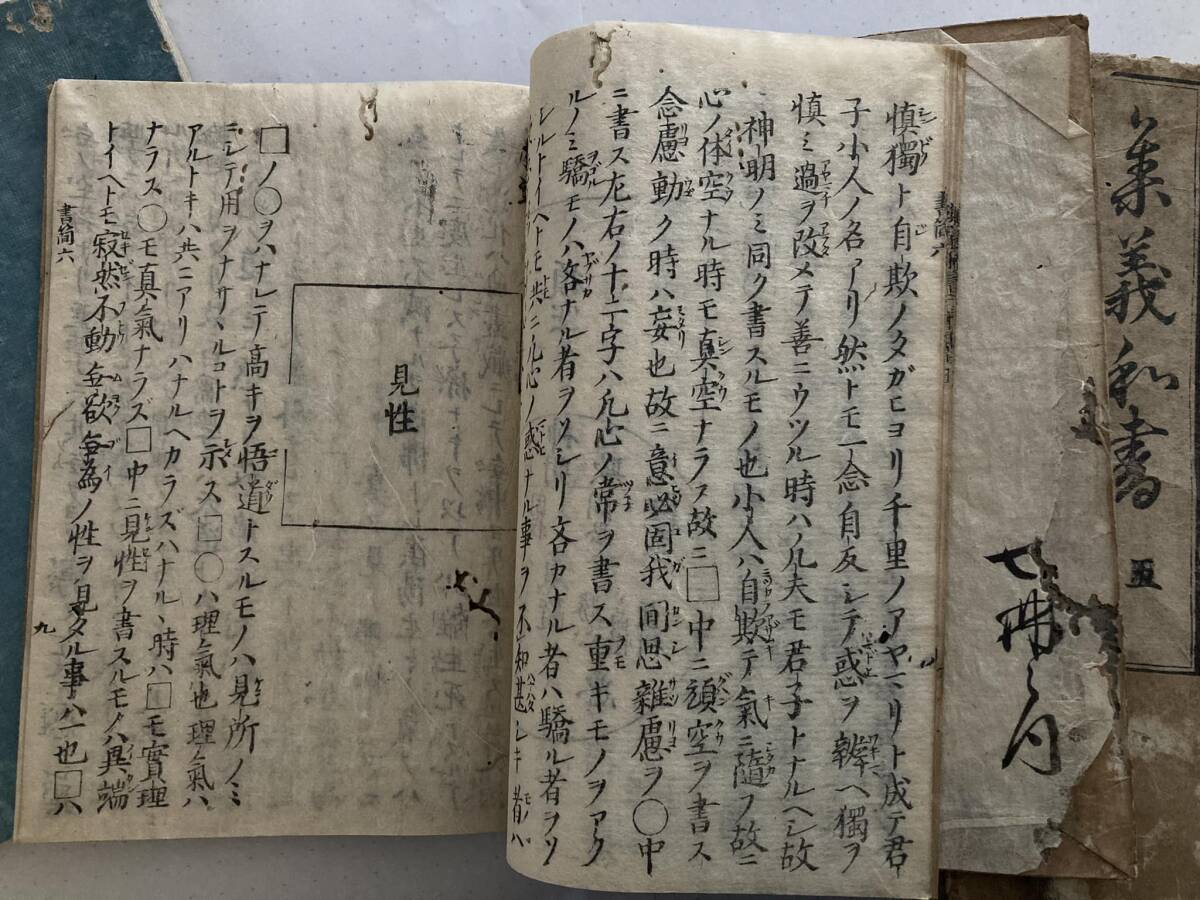 集義和書
五
慎獨ト自欺ノタガヒヨリ千里ノアヤマリト成テ君
子小人ノ名アリ然トモ一念自反シテ惑ヲ辨ヘ獨ヲ
慎ミ過ヲ改メテ善ニウツル時ハ凡夫モ君子トナルヘシ故
ニ神明ノミ同ク書スルモノ也小人ハ自欺テ氣ニ隨フ故ニ
心ノ体空ナル時モ真空ナラス故ニ□中ニ頑空ヲ書ス
念慮動ク時ハ妄也故ニ意必固我間思雜慮ヲ○中
ニ書ス左右ノ十二字ハ凡心ノ常ヲ書ス重キモノヲアク
ルノミ驕モノハ吝ナル者ヲソシリ吝カナル者ハ驕ル者ヲソ
シルトイヘトモ共ニ凡心ノ惑ナル事ヲ不知甚シキ者ハ
書簡六
見性
□ノ○ヲハナレテ高キヲ悟道トスルモノハ見所ノミ
ニシテ用ヲナサヽルコトヲ示ス□○ハ理氣也理氣ハ
アルトキハ共ニアリハナルヘカラズハナルヽ時ハ□モ實理
ナラス○モ真氣ナラズ□中ニ見性ヲ書スルモノハ異端
トイヘトモ寂然不動無欲無為ノ性ヲ見タル事ハ一也□ハ
書簡六
九